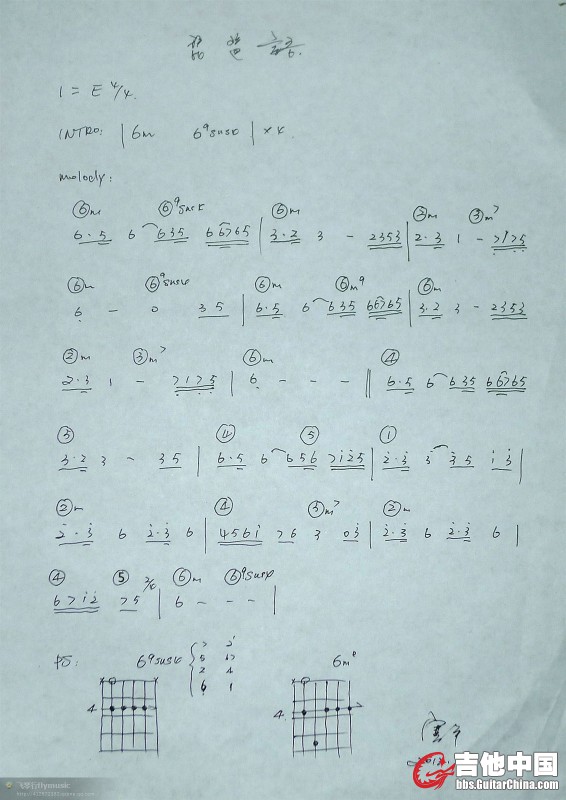 琵琶
1 = E 4/4.
INTRO: | 6m 6⁹sus4 | ×4.
melody:
⑥m ⑥⁹sus4 ⑥m ②m ③m⁷
6·5 6 635 66765 | 3·2 3 - 2353 | 2·3 1 - 7175
⑥m ⑥⁹sus4 ⑥m ⑥m⁹ ⑥m
6 - 0 35 | 6·5 6 635 66765 | 3·2 3 - 2353
②m ③m⁷ ⑥m ④
2·3 1 - 7175 | 6 - - - || 6·5 6 635 66765
③ ④ ⑤ ①
3·2 3 - 35 | 6·5 6 656 7i25 | 2·3 3 35 i3 |
②m ④ ③m⁷ ②m
2·3 6 2·3 6 | 456i 76 3 03 | 2·3 6 2·3 6 |
④ ⑤ ⑥m ⑥⁹sus4
67i2 75 | 6 - - - |
6⁹sus4
7
5
2
6
6m⁹
4
4
吉他中国
bbs.GuitarChina.com
飞零行flymusic